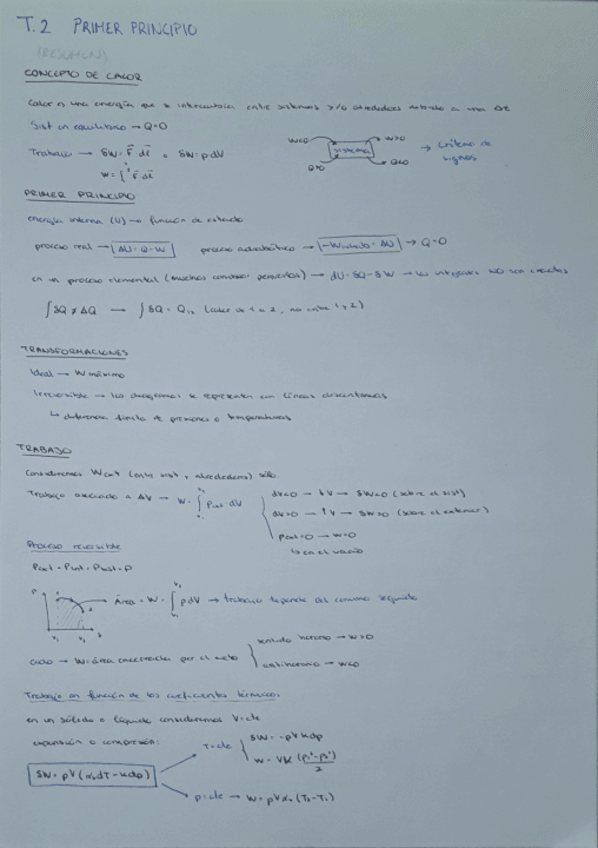 T.2 PRIMER PRINCIPIO
(RESUMEN)
CONCEPTO DE CALOR
Calor es una energía que se intercambia entre sistemas y/o alrededores debido a una ΔT
Sist en equilibrio → Q=0
Trabajo → δW = F⃗ dl⃗ = δW = p dV
W = ∫ F⃗ dl⃗
W<0 sistema W>0
Q>0 Q<0
→ Criterio de signos
PRIMER PRINCIPIO
energía interna (U) → función de estado
proceso real → ΔU = Q - W proceso adiabático → -Wadiab = ΔU → Q=0
en un proceso elemental (muchos cambios pequeños) → dU = δQ - δW → las integrales NO son exactas
∫δQ ≠ ΔQ → ∫δQ = Q₁₂ (calor de 1 a 2, no entre 1 y 2)
TRANSFORMACIONES
Ideal → W máximo
Irreversible → los diagramas se representan con líneas discontinuas
↳ diferencia finita de presiones o temperaturas
TRABAJO
Consideramos Wext (entre sist y alrededores) sólo.
Trabajo asociado a ΔV → W = ∫ Pext · dV
dV<0 → ↓V → δW<0 (sobre el sist)
dV>0 → ↑V → δW>0 (sobre el exterior)
Pext=0 → W=0
↳ en el vacío
Proceso reversible
Pext = Pint = Psist = P
Área = W = ∫ p dV → trabajo depende del camino seguido
P
V₁ V₂
ciclo → W = área encerrada por el ciclo
sentido horario → W>0
antihorario → W<0
Trabajo en función de los coeficientes térmicos
en un sólido o líquido consideramos V=cte
expansión o compresión:
δW = pV(α dT - κ dp)
T=cte
δW = -pVκdp
W = Vκ (p₁² - p₂²)/2
p=cte → W = pVα (T₂ - T₁)